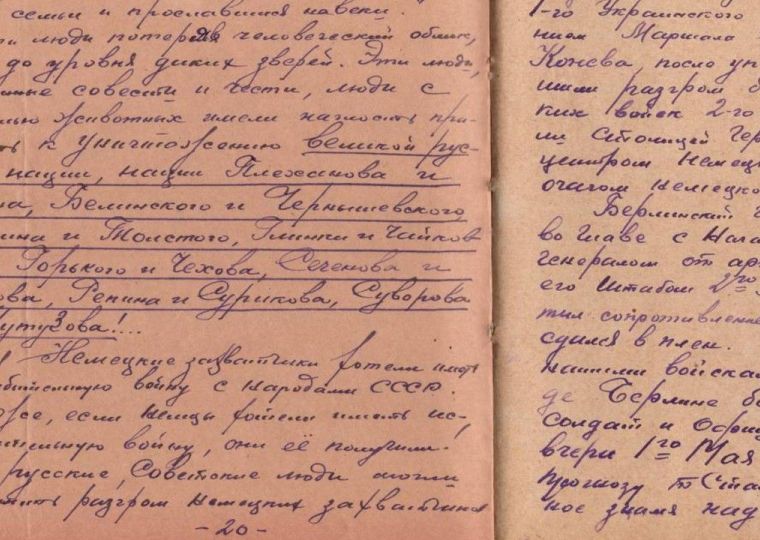 семьи и прославился навеки.
ти люди потеряв человеческий облик,
до уровня диких зверей. Эти люди,
нные совести и чести, люди с
лью животных имели наглость при-
ть к уничтожению великой рус-
нации, нации Плеханова и
на, Белинского и Чернышевского,
кина и Толстого, Глинки и Чайков
Горького и Чехова, Сеченова и
ова, Репина и Сурикова, Суворова
Кутузова!...
Немецкие захватчики хотели иметь
ебительную войну с народами СССР.
если немцы хотели иметь ис-
ительную войну, они её получили.
русские, Советские люди могли
тить разгром немецких захватчиков
-20-
1-го Украинского
нием Маршала
Конева, после уп
шили разгром б
ких войск 2-го
ли столицей Гер
центром немец
очагом немецко
Берлинский г
во главе с нача
генералом от ар
его штабом 2-го
тил сопротивление
сдался в плен.
нашими войска
де Берлине б
солдат и офиц
вчера 1го Мая
прогнозу т. Ста
ное знамя над